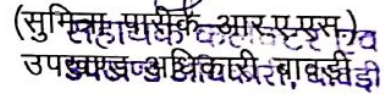 (सुमित्रा पारीक, आर.ए.एस.)
सहायक कलक्टर एवं
उपखण्ड अधिकारी, बावड़ी